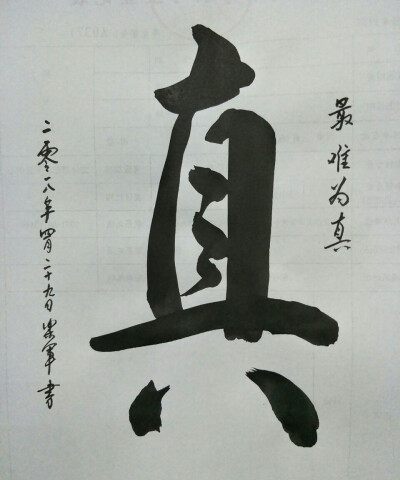 最难为真
真
二零一八年四月二十九日荣军书